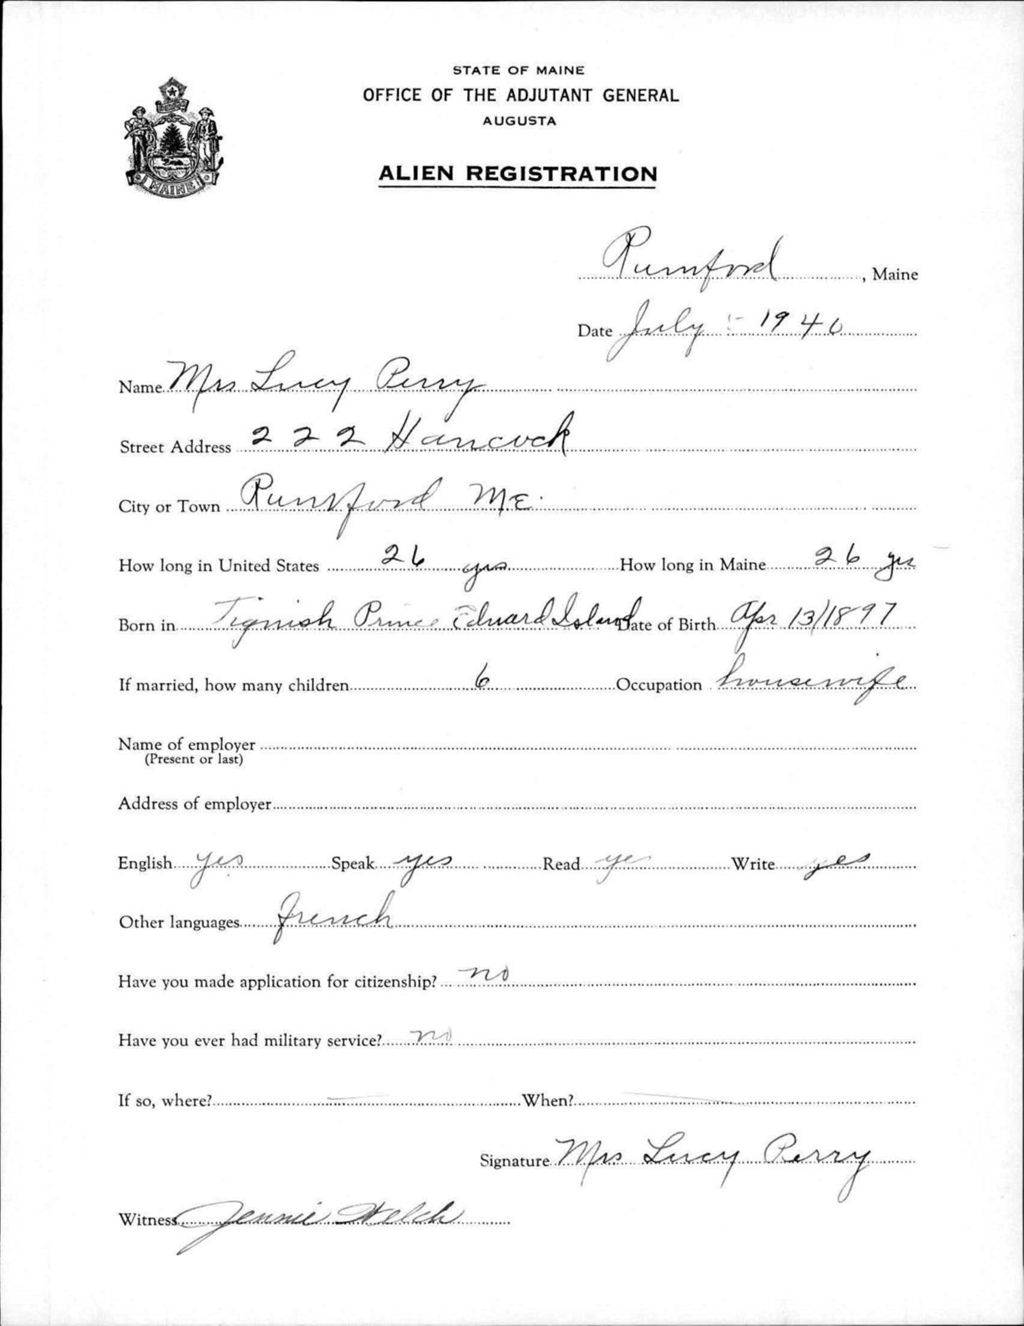 STATE OF MAINE
OFFICE OF THE ADJUTANT GENERAL
AUGUSTA
ALIEN REGISTRATION
MAINE
Rumford, Maine
Date July 1940
Name Mrs Lucy Perry
Street Address 222 Hancock
City or Town Rumford ME.
How long in United States 26 yrs How long in Maine 26 yrs
Born in Tignish Prince Edward Island Date of Birth Apr 13/1897
If married, how many children 6 Occupation housewife
Name of employer
(Present or last)
Address of employer
English yes Speak yes Read yes Write yes
Other languages french
Have you made application for citizenship? no
Have you ever had military service? no
If so, where? When?
Signature Mrs Lucy Perry
Witness Jennie Welch